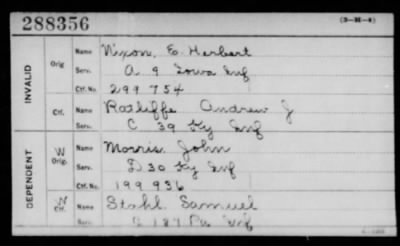 288356
(3-M-4)
INVALID
Orig
Name Nixon, E. Herbert
Serv. A 9 Iowa Inf
Ctf. No. 299 754
Ctf.
Name Ratliffe Andrew J
Serv. C 39 Ky Inf
DEPENDENT
W
Orig.
Name Morris, John
Serv. D 30 Ky Inf
Ctf. No. 199 936
W
Ctf.
Name Stahl Samuel
Serv. 187 Pa Inf